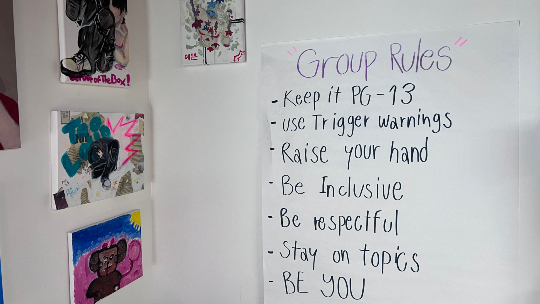 "Group Rules"
- Keep it PG-13
- use Trigger warnings
- Raise your hand
- Be Inclusive
- Be respectful
- Stay on topics
- BE YOU